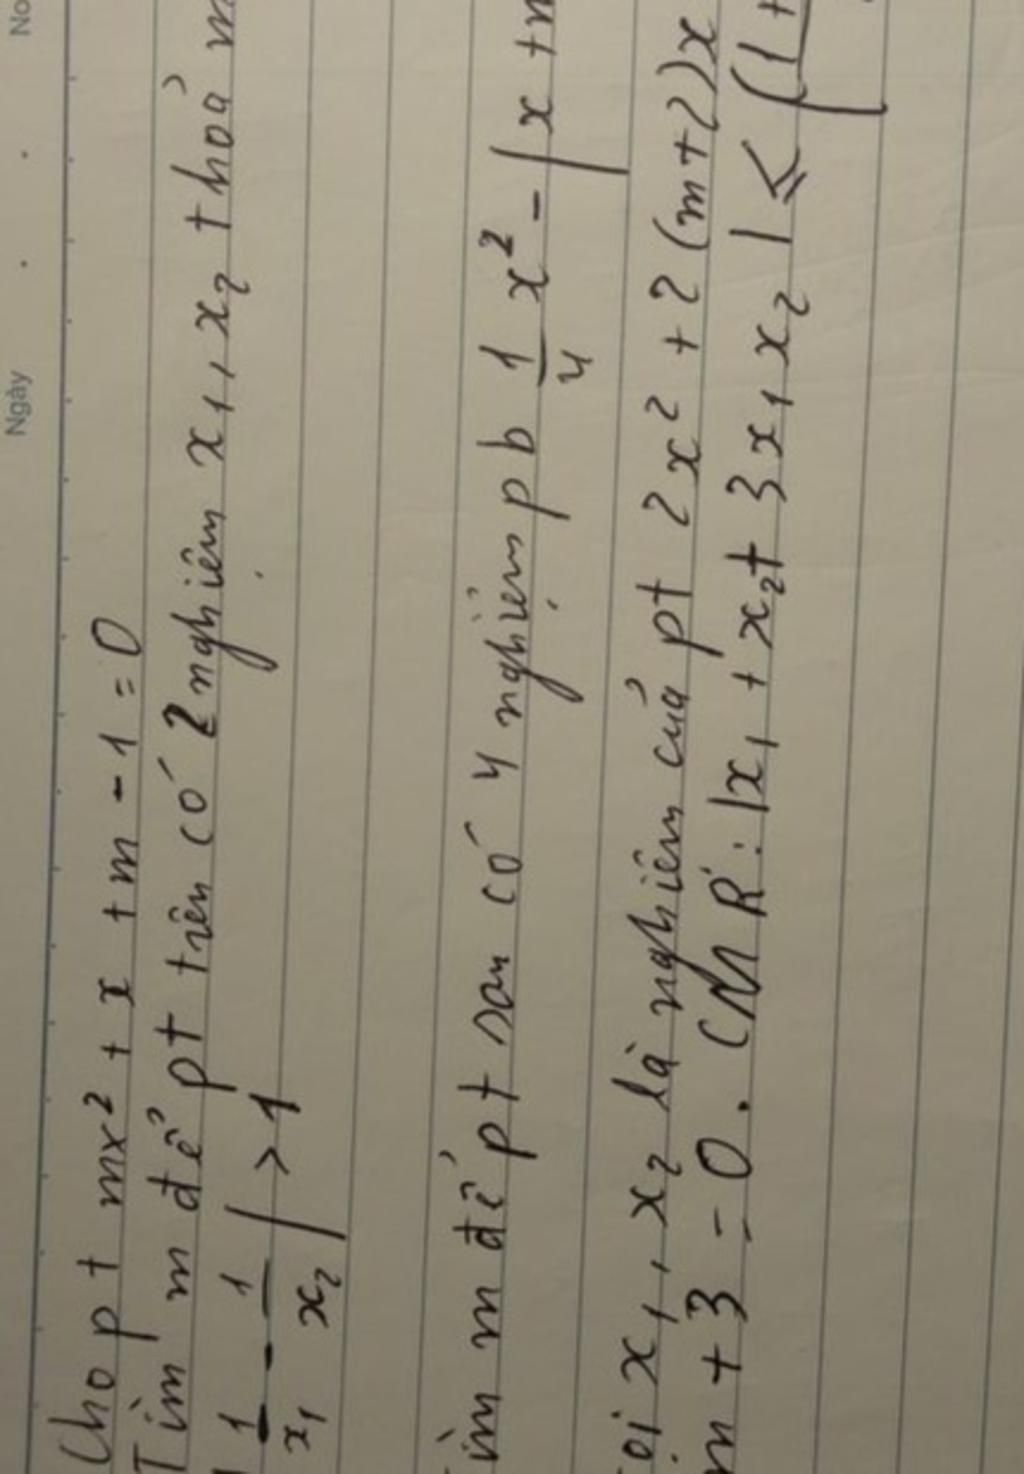 No
Ngày
Cho pt mx² + x + m - 1 = 0
Tìm m để pt trên có 2 nghiệm x₁, x₂ thoả
1/x₁ - 1/x₂ | > 1
ìm m để pt sau có 4 nghiệm pb 1/4 x² - | x +
ọi x₁, x₂ là nghiệm của pt 2x² + 2(m+2)x
m + 3 = 0. CMR: |x₁ + x₂ + 3x₁x₂| ≤ (1 +